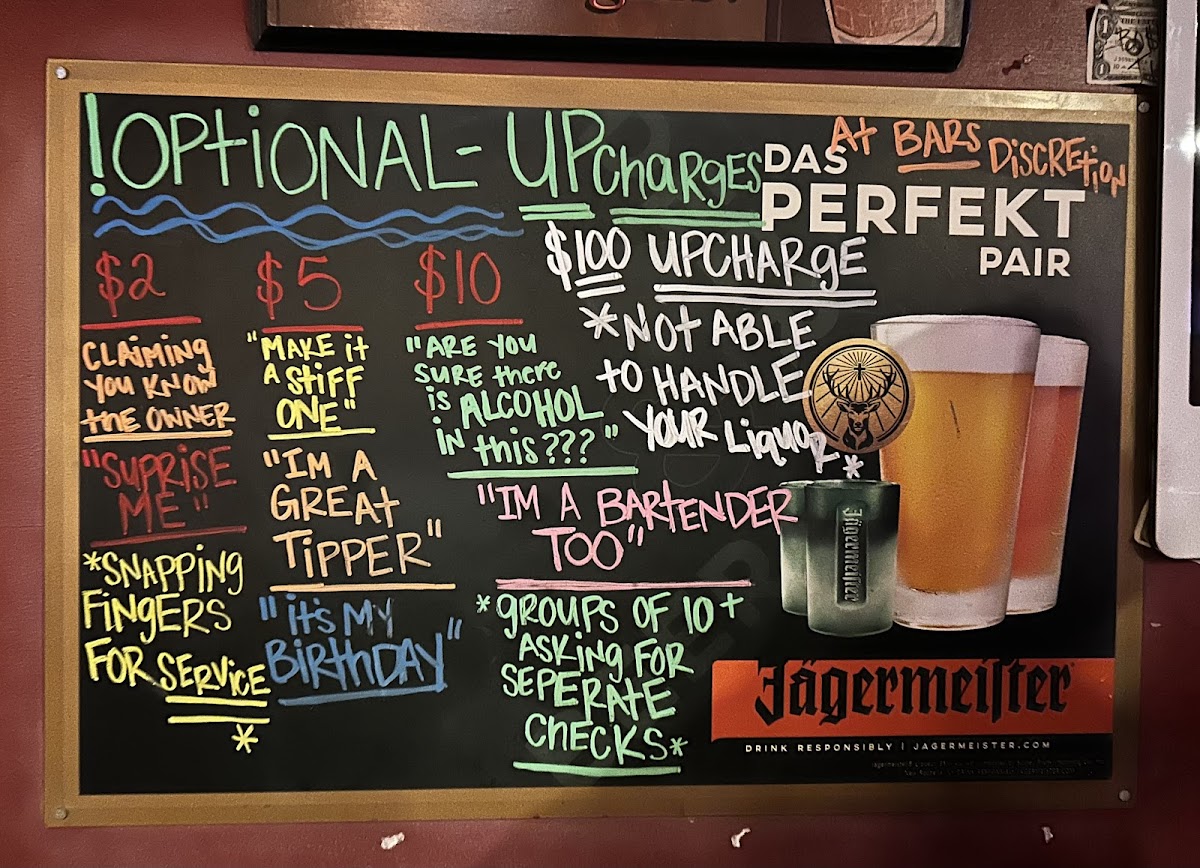 !OPtiONAL - UPchargEs
At BARS
DiSCREtiON
DAS
PERFEKT
PAIR
$2
CLAIMING
YOU KNOW
the OWNER
"SUPRISE
ME"
*SNAPPING
FINGERS
FOR SERVICE
*
$5
"MAKE it
A StiFF
ONE"
"IM A
GREAt
TIPPER"
"it's MY
BirthDAY"
$10
"ARE YOU
SURE there
is ALCOHOL
IN this???"
"IM A BARtENDER
TOO"
*GROUPS OF 10+
ASKING FOR
SEPERATE
CHECKS*
$100 UPCHARgE
*NOt ABLE
to HANDLE
YOUR LiquoR
*
Jägermeister
Jägermeiſter
DRINK RESPONSIBLY | JAGERMEISTER.COM